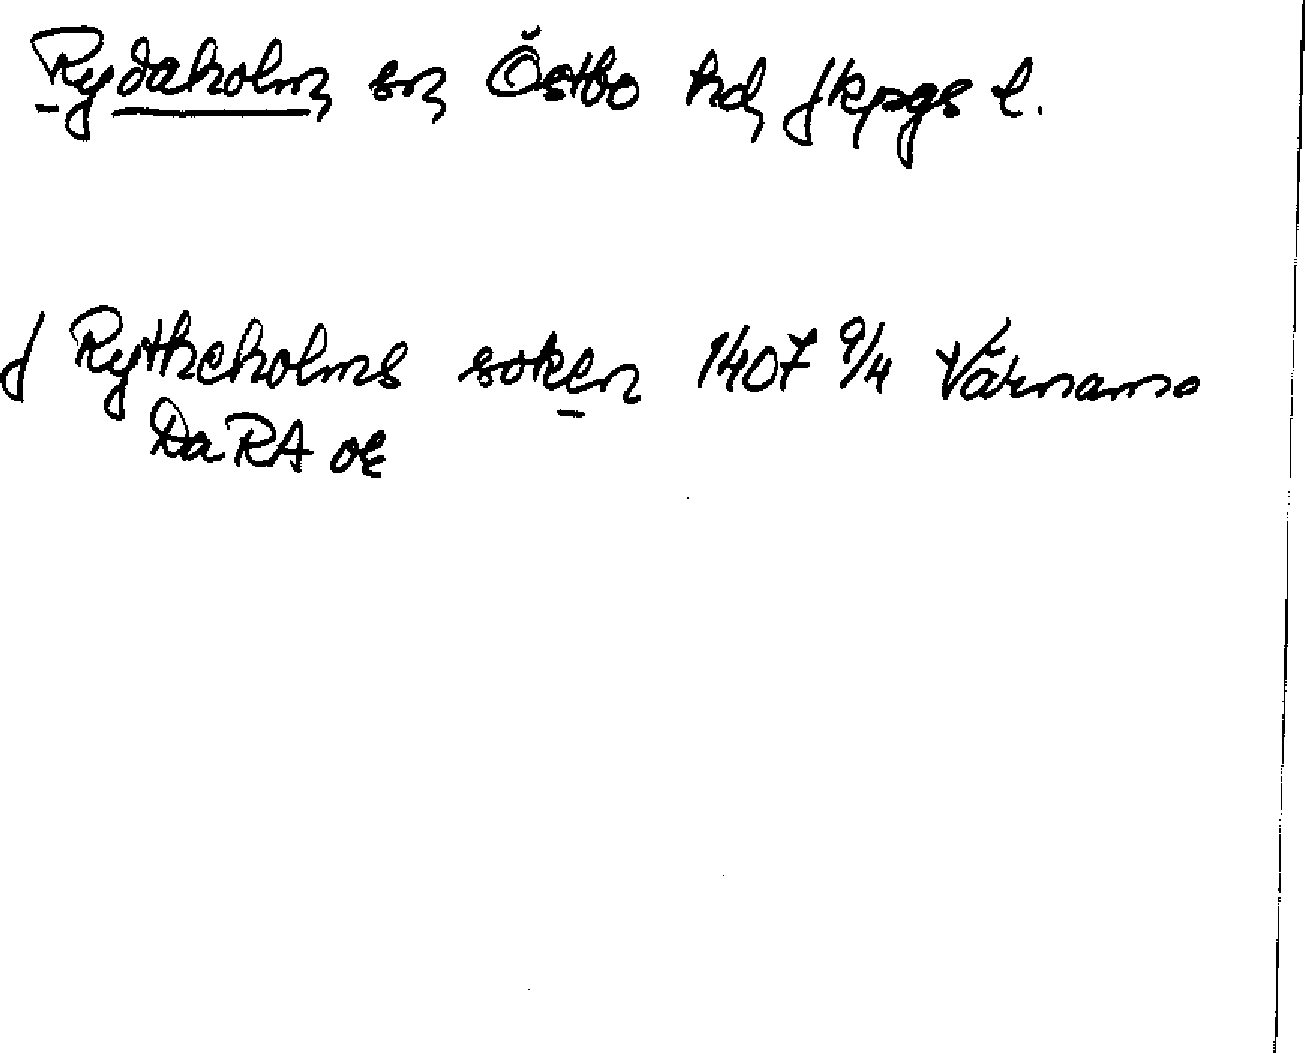 Rydaholm sn Östbo hd Jkpgs l.
J Rytheholms soken 1407 9/4 Värnamo
DaRA or